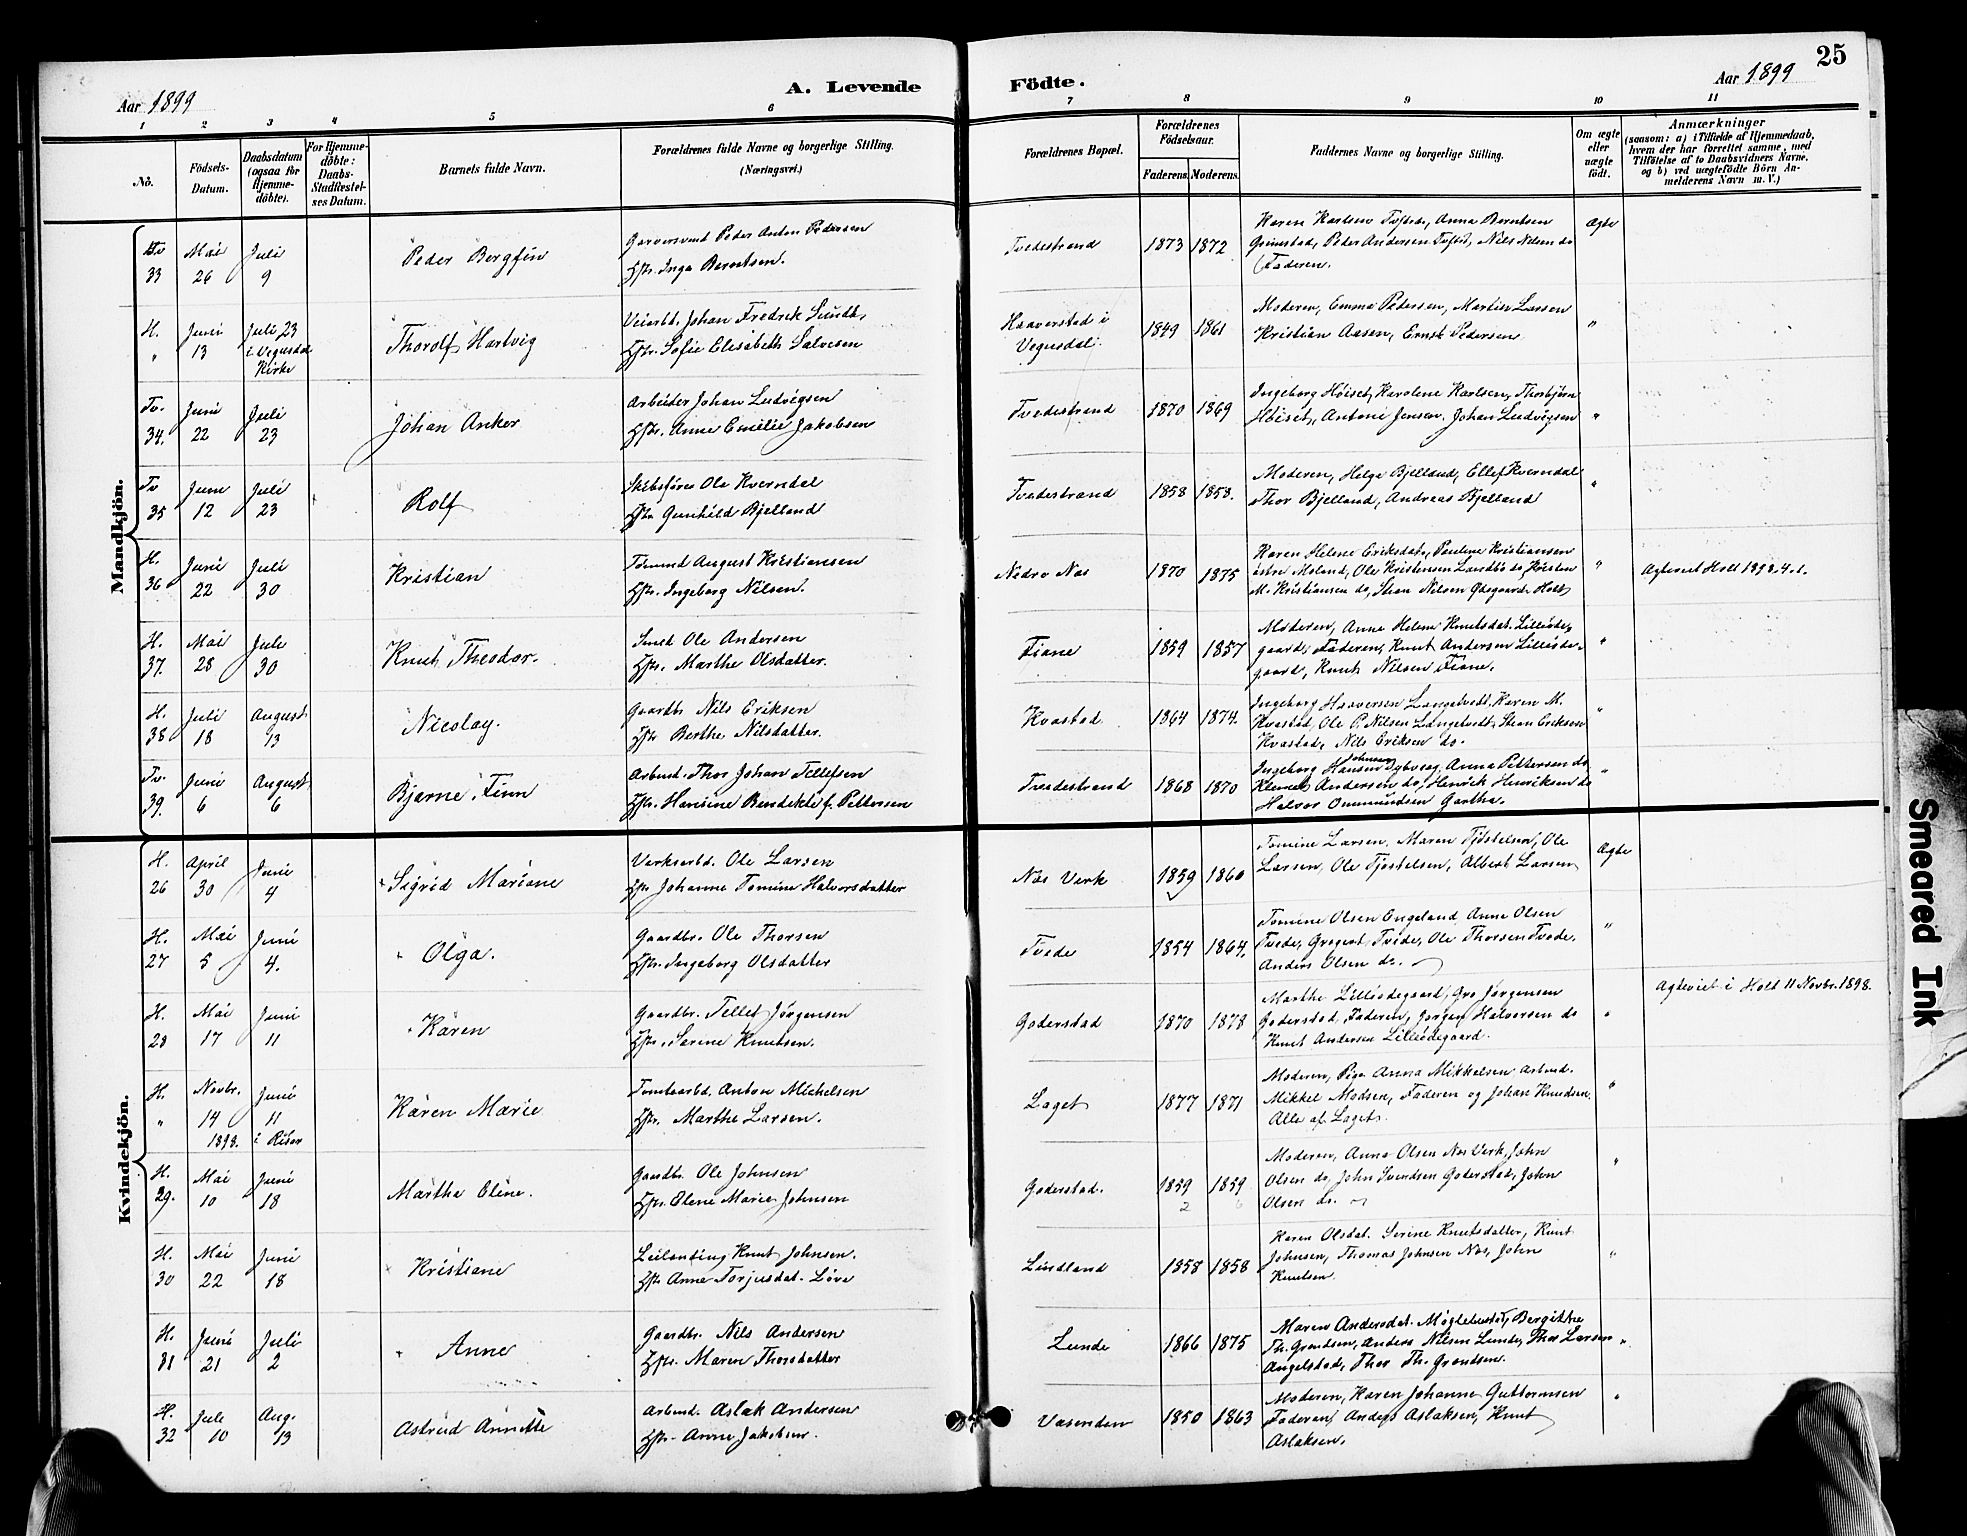 25
Aar 1899
A. Levende
Födte.
Aar 1899
1 2 3 4 5 6 7 8 9 10 11
No.
Födsels-
Datum.
Daabsdatum
(ogsaa for
Hjemme-
döbte).
For Hjemme-
döbte:
Daabs-
Stadfæstel-
ses Datum.
Barnets fulde Navn.
Forældrenes fulde Navne og borgerlige Stilling.
(Næringsvei.)
Forældrenes Bopæl.
Forældrenes
Födselsaar.
Faderens. Moderens.
Faddernes Navne og borgerlige Stilling.
Om ægte
eller
uægte
födt.
Anmærkninger
(saasom: a) i Tilfælde af Hjemmedaab,
hvem der har forrettet samme, med
Tilföielse af to Daabsvidners Navne,
og b) ved uægtefödte Börn An-
melderens Navn m. V.)
Mandkjön.
Tv 33 Mai 26 Juli 9
Peder Bergfin
Garversvend Peder Anton Pedersen
Hstr. Inga Berntsen.
Tvedestrand 1873 1872
Karen Karlsen Tvstr., Anna Berntsen
Grimstad, Peder Andersen Tvstr., Nils Nilsen do
Faderen.
Ægte
H. " Juni 13 Juli 23
i Vegusdal
Kirke
Thorolf Hartvig
Veiarbd. Johan Fredrik Sundt,
Hstr. Sofie Elisabeth Salvesen
Haaverstad i
Vegusdal. 1849 1861
Moderen, Emma Pedersen, Martin Larsen
Kristian Aasen, Ernst Pedersen
"
Tv. 34. Juni 22 Juli 23
Johan Anker
Arbeider Johan Ludvigsen
Hstr. Anne Emilie Jakobsen
Tvedestrand 1870 1869
Ingeborg Höiset, Karoline Karlsen, Thorbjörn
Höiset, Antoni Jensen, Johan Ludvigsen
"
Tv 35 Juni 12 Juli 23
Rolf
Skibsförer Ole Kverndal
Hstr Gunhild Bjelland
Tvedestrand 1858 1858.
Moderen, Helga Bjelland, Ellef Kverndal
Thor Bjelland, Andreas Bjelland
"
H. 36 Juni 22 Juli 30
Kristian
Tömmd August Kristiansen
Hstr. Ingeborg Nilsen.
Nedre Næs 1870 1875
Karen Helene Eriksdat., Pauline Kristiansen
östre Moland, Ole Kristensen Landbö do, Kristen
M. Kristiansen do, Stean Nilsen Ödegaard Holt
"
Agteviet Holt 1898.4.1.
H. 37. Mai 28 Juli 30
Knut Theodor.
Smed Ole Andersen
Hstr. Marthe Olsdatter.
Fiane 1859 1857
Moderen, Anne Helene Knutsdat. Lilleöde,
gaard, Faderen, Knut Andersen Lilleöde-
gaard, Knut Nilsen Fiane.
"
H. 38 Juli 18 August 13
Nicolay.
Gaardbr Nils Eriksen
Hstr Berthe Nilsdatter.
Kvastad 1864 1874.
Ingeborg Haaversen Langetvedt, Karen M.
Kvastad, Ole P. Nilsen Langetvedt, Stean Eriksen
Kvastad, Nils Eriksen do.
"
Tv. 39. Juni 6 August 6
Bjarne Finn
Arbmd. Thor Johan Tellefsen
Hstr. Hansine Bendekte f. Pettersen
Tvedestrand 1868 1870
Ingeborg Hansen Dybvaag, Anna Pettersen do
Johnsen
Klemet Andersen do, Henrik Henriksen do
Halvor Ommundsen Gartha.
"
Kvindekjön.
H. 26 April 30 Juni 4
Sigrid Mariane
Verksarbd. Ole Larsen
Hstr Johanne Tomine Halvorsdatter
Næs Verk 1859 1860
Tomine Larsen, Maren Tjöstelsen, Ole
Larsen, Ole Tjöstelsen, Albert Larsen
Ægte
H. 27 Mai 5 Juni 4.
Olga.
Gaardbr. Ole Thorsen
Hstr. Ingeborg Olsdatter
Tvede 1854 1864.
Tomine Olsen Engeland Anna Olsen
Tvede, Gregert Tvede, Ole Thorsen Tvede.
Anders Olsen do.
"
H. 28 Mai 17 Juni 11
Karen
Gaardbr. Tellef Jörgensen
Hstr. Serine Knutsen.
Goderstad 1870 1878
Marthe Lilleödegaard, Gro Jørgensen
Goderstad, Faderen, Jørgen Halvorsen do
Knut Andersen Lilleödegaard.
"
Agteviet i Holt 11 Novbr. 1898.
H. " Novbr. 14 1898. Juni 11
i Risør
Karen Marie
Tomtearbd. Anton Michelsen
Hstr. Marthe Larsen.
Laget 1877 1871
Moderen, Pige Anna Mikkelsen Arbmd.
Mikkel Madsen, Faderen og Johan Knudsen
Alle af Laget.
"
H. 29. Mai 10 Juni 18
Martha Oline.
Gaardbr. Ole Johnsen
Hstr. Olene Marie Johnsen
Goderstad. 1859 1859
Moderen, Anna Olsen Næs Verk, John
Olsen do, John Svendsen Goderstad, John
Olsen do.
"
H. 30 Mai 22 Juni 18
Kristiane
Leilænding Knut Johnsen.
Hstr Anne Torjusdat. Löve
Lindland 1858 1858
Karen Olsdat. Serine Knutsdatter, Knut
Johnsen, Thomas Johnsen Næs, John
Knutsen.
"
H. 31 Juni 21 Juli 2
Anne
Gaardbr. Nils Andersen
Hstr. Maren Thorsdatter
Lunde 1866 1875
Maren Andersdat. Möglebustad, Bergithe
Th. Grendsen, Anders Nilsen Lunde, Thor Larsen
Angelstad, Thor Th. Grendsen.
"
H. 32 Juli 10 Aug. 13
Astrid Annette
Arbmd. Aslak Andersen
Hstr. Anne Jakobsen.
Vasenden 1850 1863
Moderen, Karen Johanne Guttormsen
Faderen, Anders Aslaksen, Knut
Aslaksen.
"
Smeared Ink